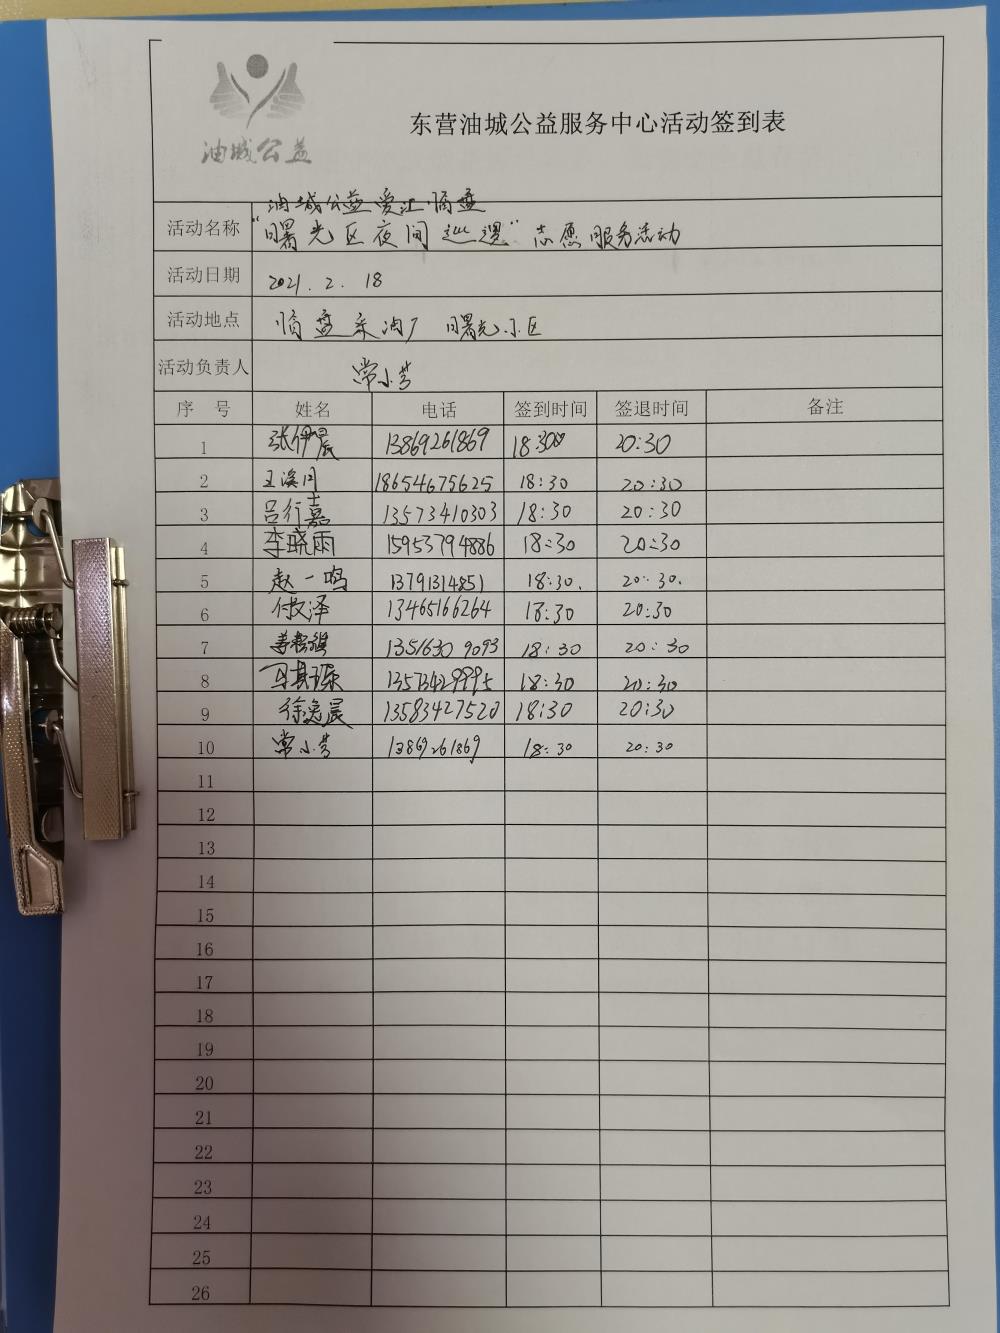 油城公益
东营油城公益服务中心活动签到表
油城公益爱汇临盘
活动名称 "曙光区夜间巡逻"志愿服务活动
活动日期 2021.2.18
活动地点 临盘采油厂曙光小区
活动负责人 常小芳
序号 姓名 电话 签到时间 签退时间 备注
1 张伊晨 13869261869 18:30 20:30
2 王溪 18654675625 18:30 20:30
3 吕行嘉 13573410303 18:30 20:30
4 李晓雨 15953794886 18:30 20:30
5 赵一鸣 13791314851 18:30. 20:30.
6 付文泽 13465166264 18:30 20:30
7 13516309093 18:30 20:30
8 13573429995 18:30 20:30
9 徐晨 13583427520 18:30 20:30
10 常小芳 13869261869 18:30 20:30
11
12
13
14
15
16
17
18
19
20
21
22
23
24
25
26